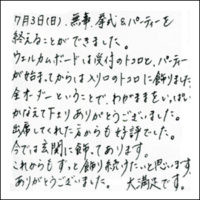 7月3日(日)、無事、挙式&パーティーを
終えることができました。
ウェルカムボードは受付のトコロと、パーティー
が始まってからは入り口のトコロに飾りました。
全オーダーということで、わがままをいっぱい
かなえて下さりありがとうございました。
出席してくれた方からも好評でした。
今では玄関に飾ってあります。
これからもずっと飾り続けたいと思います。
ありがとうございました。 大満足です。